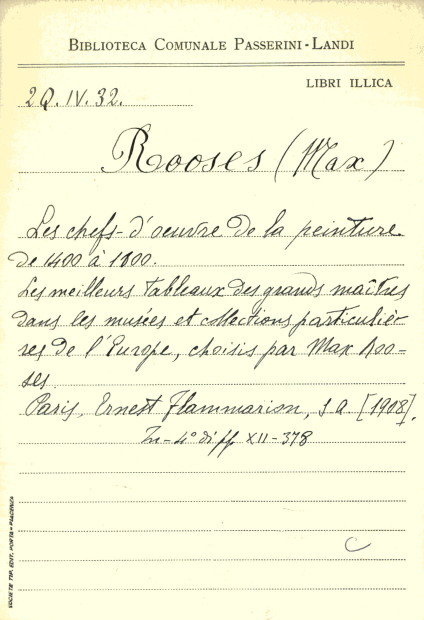 BIBLIOTECA COMUNALE PASSERINI-LANDI
LIBRI ILLICA
2Q.IV.32.
Rooses (Max)
Les chefs-d'oeuvre de la peinture
de 1400 à 1800.
Les meilleurs tableaux des grands maîtres
dans les musées et collections particuliè-
res de l'Europe, choisis par Max Roo-
ses.
Paris, Ernest Flammarion, s a [1908].
In-4° di pp XII-378
C
SOCIETÀ TIP. EDIT. PORTA - PIACENZA